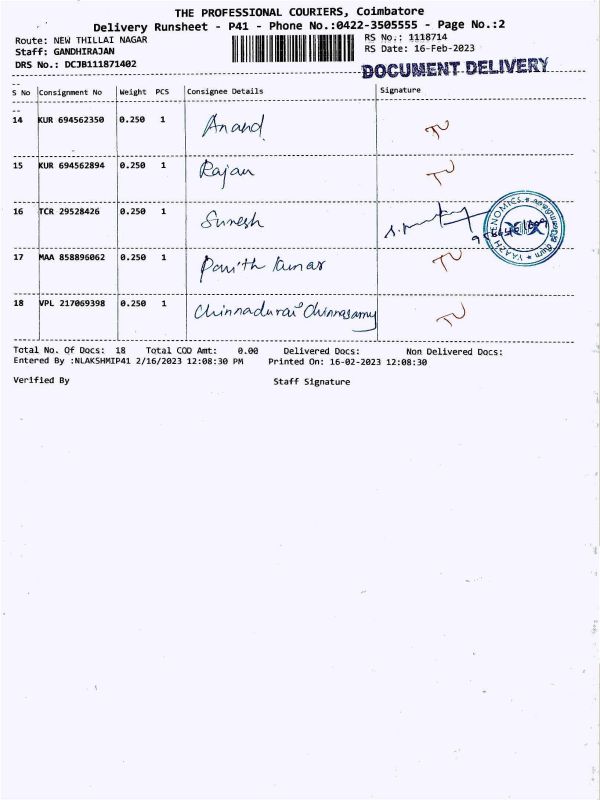 THE PROFESSIONAL COURIERS, Coimbatore
Delivery Runsheet - P41 - Phone No.:0422-3505555 - Page No.:2
Route: NEW THILLAI NAGAR RS No.: 1118714
Staff: GANDHIRAJAN RS Date: 16-Feb-2023
DRS No.: DCJB111871402
DOCUMENT DELIVERY
S No Consignment No Weight PCS Consignee Details Signature
14 KUR 694562350 0.250 1 Anand TU
15 KUR 694562894 0.250 1 Rajan TU
16 TCR 29528426 0.250 1 Suresh
17 MAA 858896062 0.250 1 Kumar TU
18 VPL 217069398 0.250 1 Chinnadurai Chinnasamy TU
Total No. Of Docs: 18 Total COD Amt: 0.00 Delivered Docs: Non Delivered Docs:
Entered By :NLAKSHMIP41 2/16/2023 12:08:30 PM Printed On: 16-02-2023 12:08:30
Verified By Staff Signature